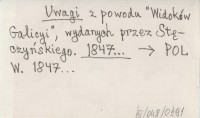 Uwagi z powodu "Widoków
Galicyi", wydanych przez Stę-
czyńskiego. 1847... → POL
W. 1847...